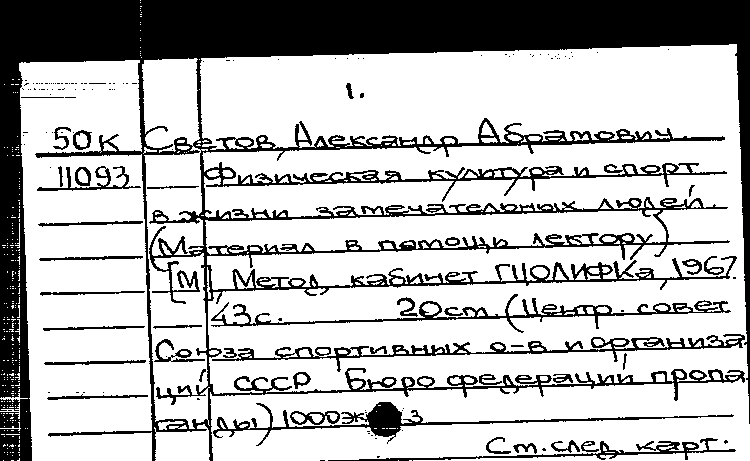 1.
50к Светов, Александр Абрамович.
11093 Физическая культура и спорт
в жизни замечательных людей.
(Материал в помощь лектору)
[М], Метод. кабинет ГЦОЛИФКа, 1967
43 с. 20 cm. (Центр. совет
Союза спортивных о-в и организа
ций СССР. Бюро федераций пропа
ганды) 1000эк 3
Ст. след. карт.